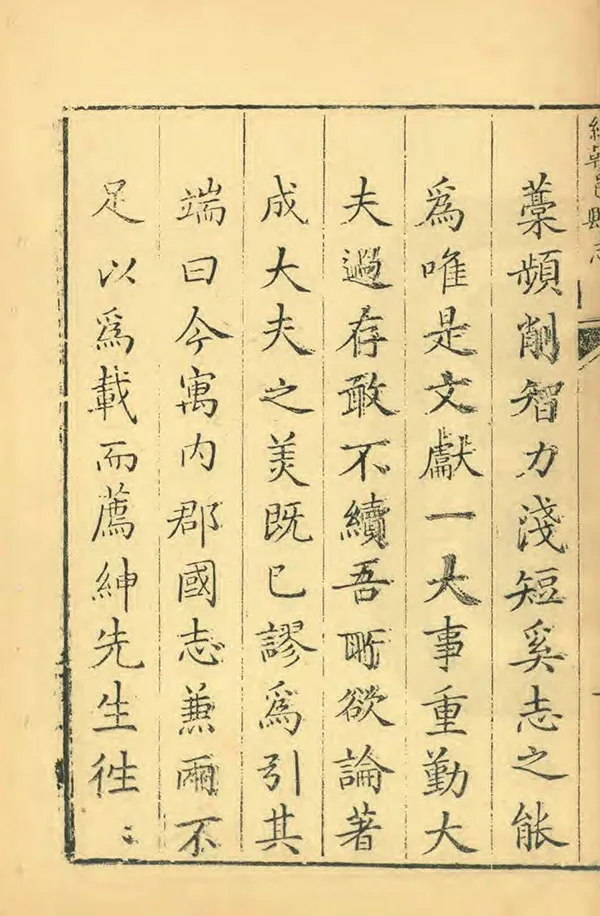 朝邑縣志
藁頻削智力淺短奚志之能
爲唯是文獻一大事重勤大
夫過存敢不續吾所欲論著
成大夫之美既已謬爲引其
端曰今寓内郡國志兼爾不
足以爲載而薦紳先生往〻